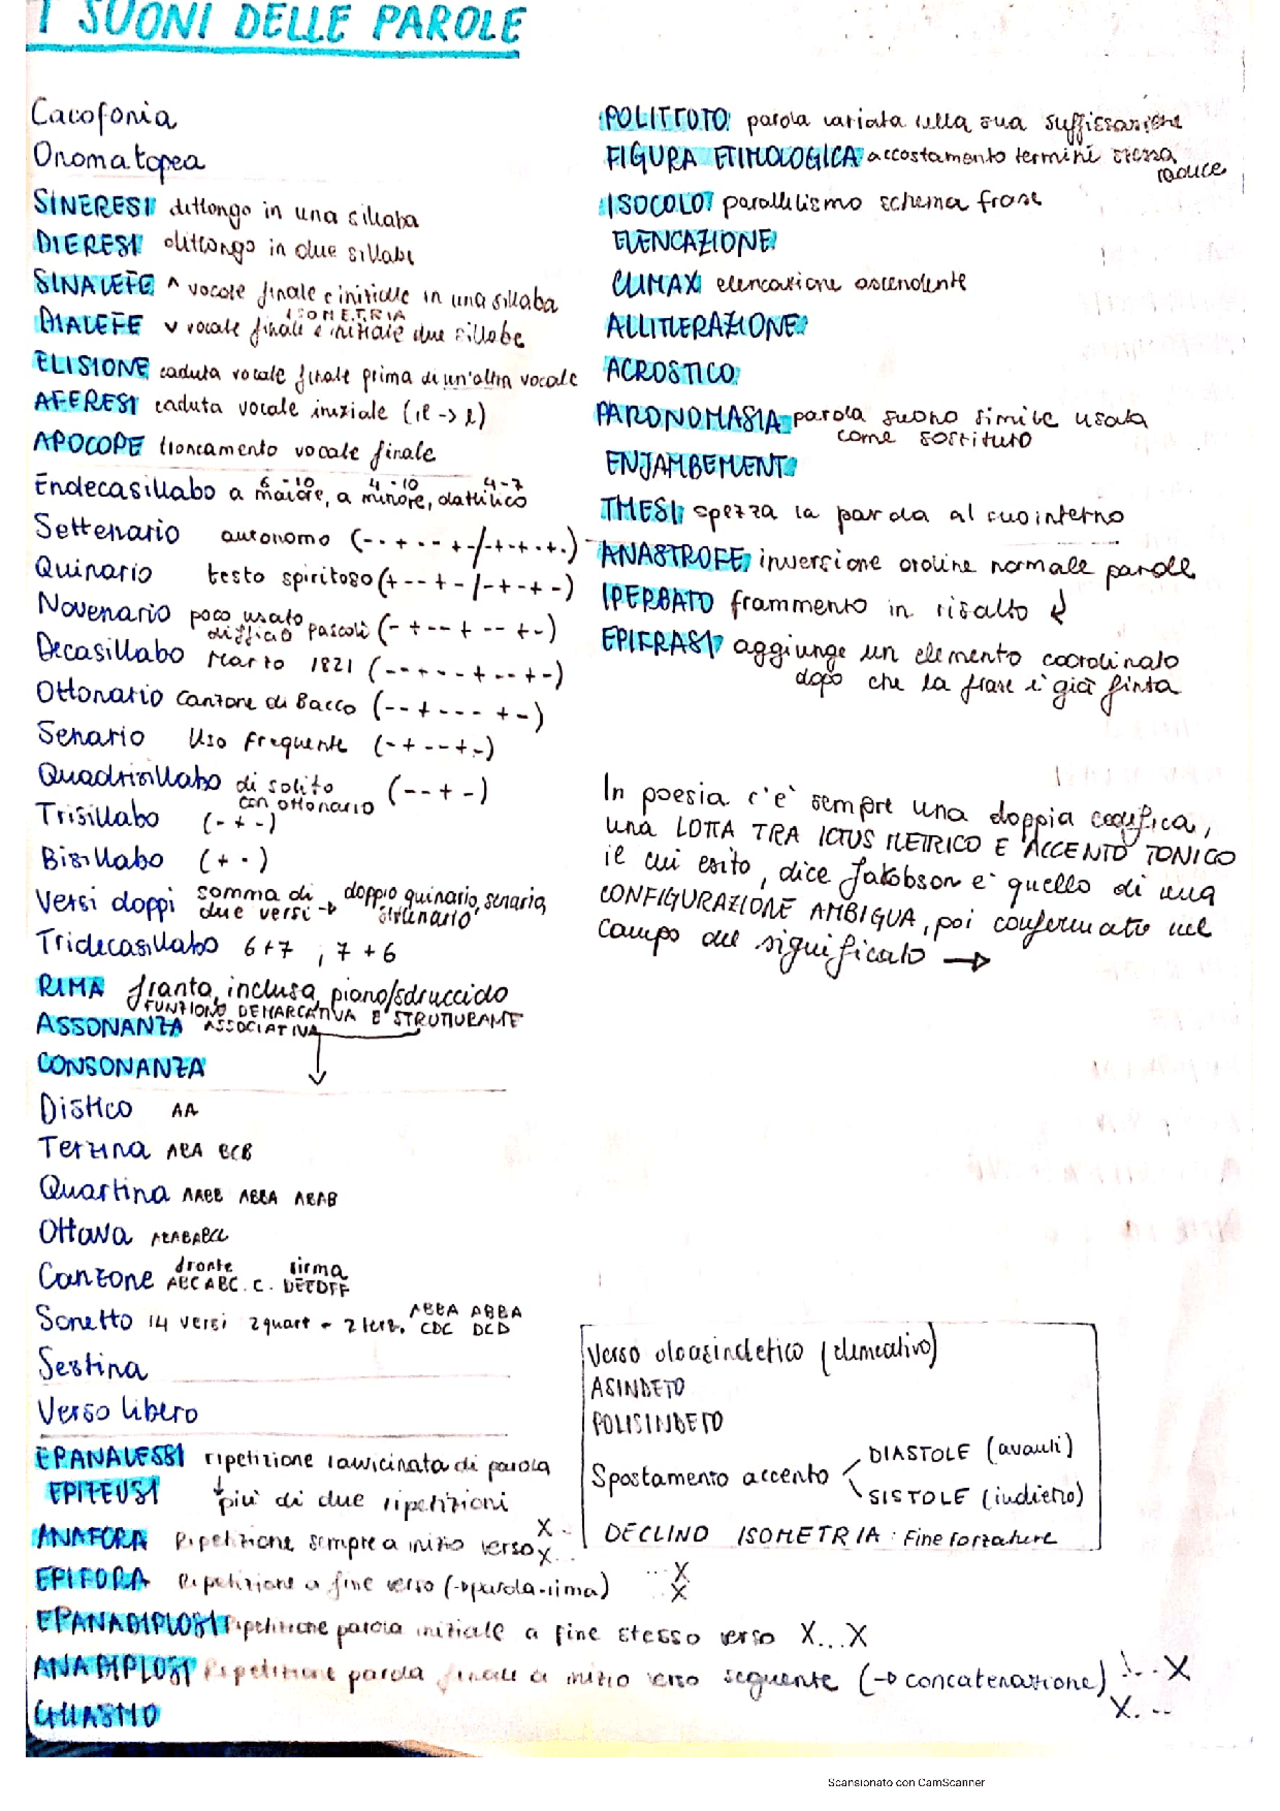 I SUONI DELLE PAROLE
Cacofonia
Onomatopea
SINERESI dittongo in una sillaba
DIERESI dittongo in due sillabe
SINALEFE ^ vocale finale e iniziale in una sillaba
ISOMETRIA
DIALEFE v vocale finale e iniziale due sillabe
ELISIONE caduta vocale finale prima di un'altra vocale
AFERESI caduta vocale iniziale (il -> l)
APOCOPE troncamento vocale finale
6-10 4-10 4-7
Endecasillabo a maiore, a minore, dattilico
Settenario autonomo (--+--+-/-+-+-+-)
Quinario testo spiritoso (+--+-/-+-+-)
Novenario poco usato
difficile Pascoli (-+--+--+-)
Decasillabo Marzo 1821 (--+--+--+-)
Ottonario Canzone di Bacco (--+---+-)
Senario Uso frequente (-+--+-)
Quadrisillabo di solito (--+-)
con ottonario
Trisillabo (-+-)
Bisillabo (+-)
Versi doppi somma di due versi -> doppio quinario, senario,
settenario
Tridecasillabo 6+7, 7+6
RIMA franta, inclusa, piano/sdrucciolo
FUNZIONE DEMARCATIVA E STRUTTURANTE
ASSONANZA ASSOCIATIVA
CONSONANZA
Distico AA
Terzina ABA BCB
Quartina AABB ABBA ABAB
Ottava ABABABCC
fronte sirma
Canzone ABC ABC. C. DEEDFF
Sonetto 14 versi 2 quart - 2 terz. ABBA ABBA
CDC DCD
Sestina
Verso libero
EPANALESSI ripetizione ravvicinata di parola
EPITEUSI più di due ripetizioni
ANAFORA Ripetizione sempre a inizio verso X..
X...
EPIFORA Ripetizione a fine verso (->parola-rima) ...X
X
EPANADIPLOSI Ripetizione parola iniziale a fine stesso verso X...X
ANADIPLOSI Ripetizione parola finale a inizio verso seguente (-> concatenazione) ...X
X...
CHIASMO
POLITTOTO parola variata nella sua suffissazione
FIGURA ETIMOLOGICA accostamento termini stessa
radice
ISOCOLO parallelismo schema frase
ELENCAZIONE
CLIMAX elencazione ascendente
ALLITTERAZIONE
ACROSTICO
PARONOMASIA parola suono simile usata
come sostituto
ENJAMBEMENT
TMESI spezza la parola al suo interno
ANASTROFE inversione ordine normale parole
IPERBATO frammento in risalto
EPIFRASI aggiunge un elemento coordinato
dopo che la frase è già finita
In poesia c'è sempre una doppia codifica,
una LOTTA TRA ICTUS METRICO E ACCENTO TONICO
il cui esito, dice Jakobson è quello di una
CONFIGURAZIONE AMBIGUA, poi confermato nel
campo del significato ->
Verso oloasindetico (elencativo)
ASINDETO
POLISINDETO
DIASTOLE (avanti)
Spostamento accento
SISTOLE (indietro)
DECLINO ISOMETRIA: Fine forzature
Scansionato con CamScanner